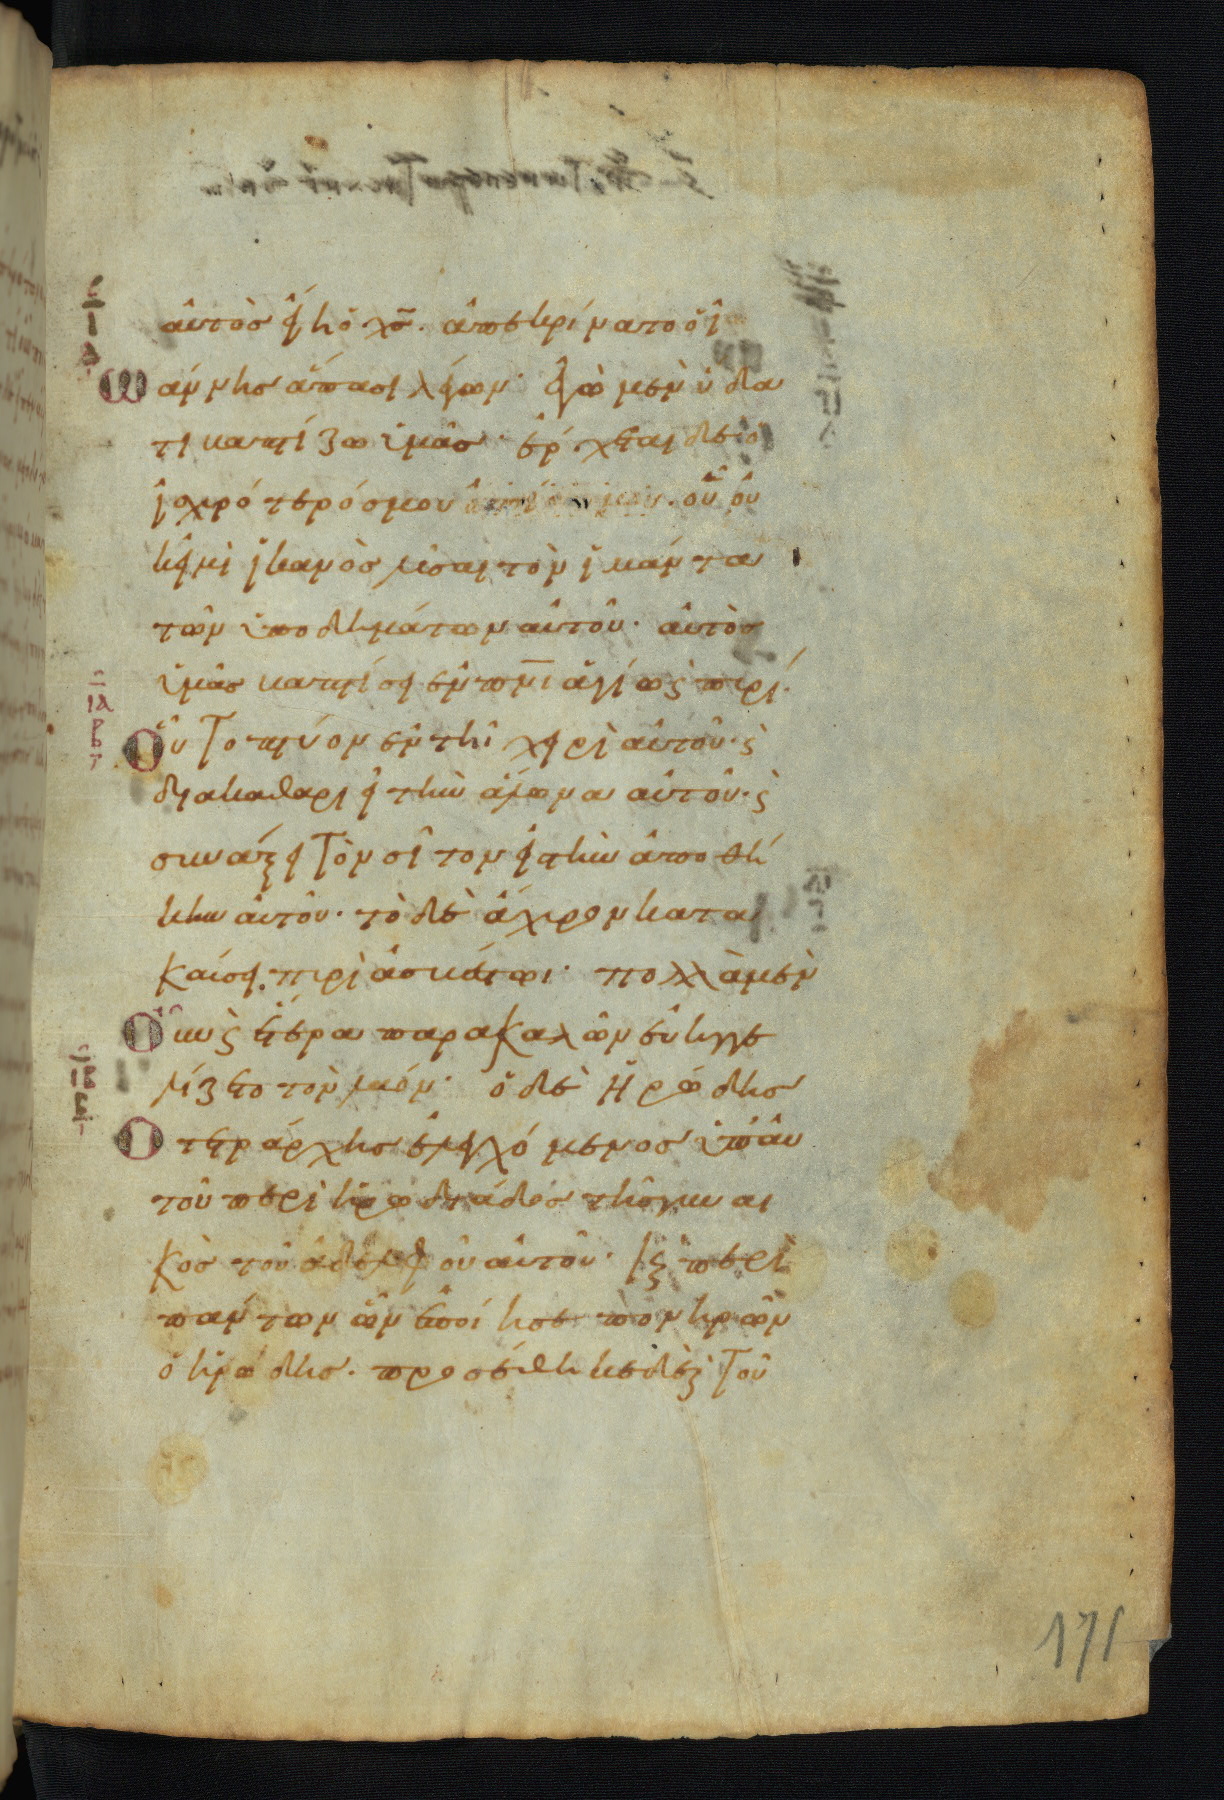 αὐτὸς εἴη ὁ χς̅. ἀπεκρίνατο ὁ ἰ
ωάννης ἅπασι λέγων· ἐγὼ μὲν ὕδα
τι βαπτίζω ὑμᾶς· ἔρχεται δὲ ὁ
ἰσχυρότερός μου ὀπίσω μου. οὗ οὐ
κ εἰμὶ ἱκανὸς λῦσαι τὸν ἱμάντα
τῶν ὑποδημάτων αὐτοῦ· αὐτὸς
ὑμᾶς βαπτίσει ἐν πνι̅ ἁγίω ϛ πυρί.
Οὗ τὸ πτύον ἐν τῆ χειρὶ αὐτοῦ· ϛ
διακαθαριεῖ τὴν ἅλωνα αὐτοῦ· ϛ
συνάξει τὸν σῖτον εἰς τὴν ἀποθή
κην αὐτοῦ· τὸ δὲ ἄχυρον κατα
καύσει πυρὶ ἀσβέστωι· πολλὰ μὲν
Οὖν ϛ ἕτερα παρακαλῶν εὐηγγε
λίζετο τὸν λαόν· ὁ δὲ Ἡρώδης
Ο τετράρχης ἐλεγχόμενος ὑπ' αὐ
τοῦ περὶ ἡρωδιάδος τῆς γυναι
κὸς τοῦ ἀδελφοῦ αὐτοῦ· ϛ περὶ
πάντων ὧν ἐποίησε πονηρῶν
ὁ ἡρώδης· προσέθηκε δὲ ϛ τοῦ
171